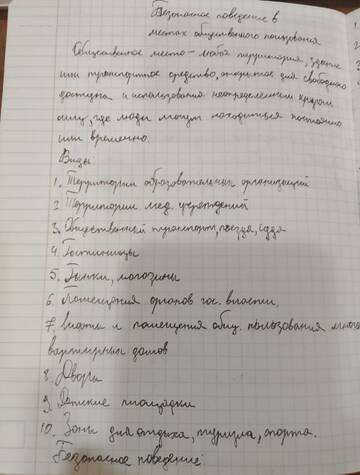 Безопасное поведение в
местах общественного пользования
Общественное место – любая территория, здание
или транспортное средство, открытое для свободного
доступа и использования неопределённым кругом
лиц, где люди могут находиться постоянно
или временно.
Виды:
1. Территории образовательных организаций
2. Территории мед. учреждений
3. Общественный транспорт, поезда, суда
4. Гостиницы
5. Рынки, магазины
6. Помещения органов гос. власти.
7. и помещения общ. пользования много
квартирных домов
8. Дворы
9. Детские площадки
10. Зоны для отдыха, туризма, спорта.
Безопасное поведение: